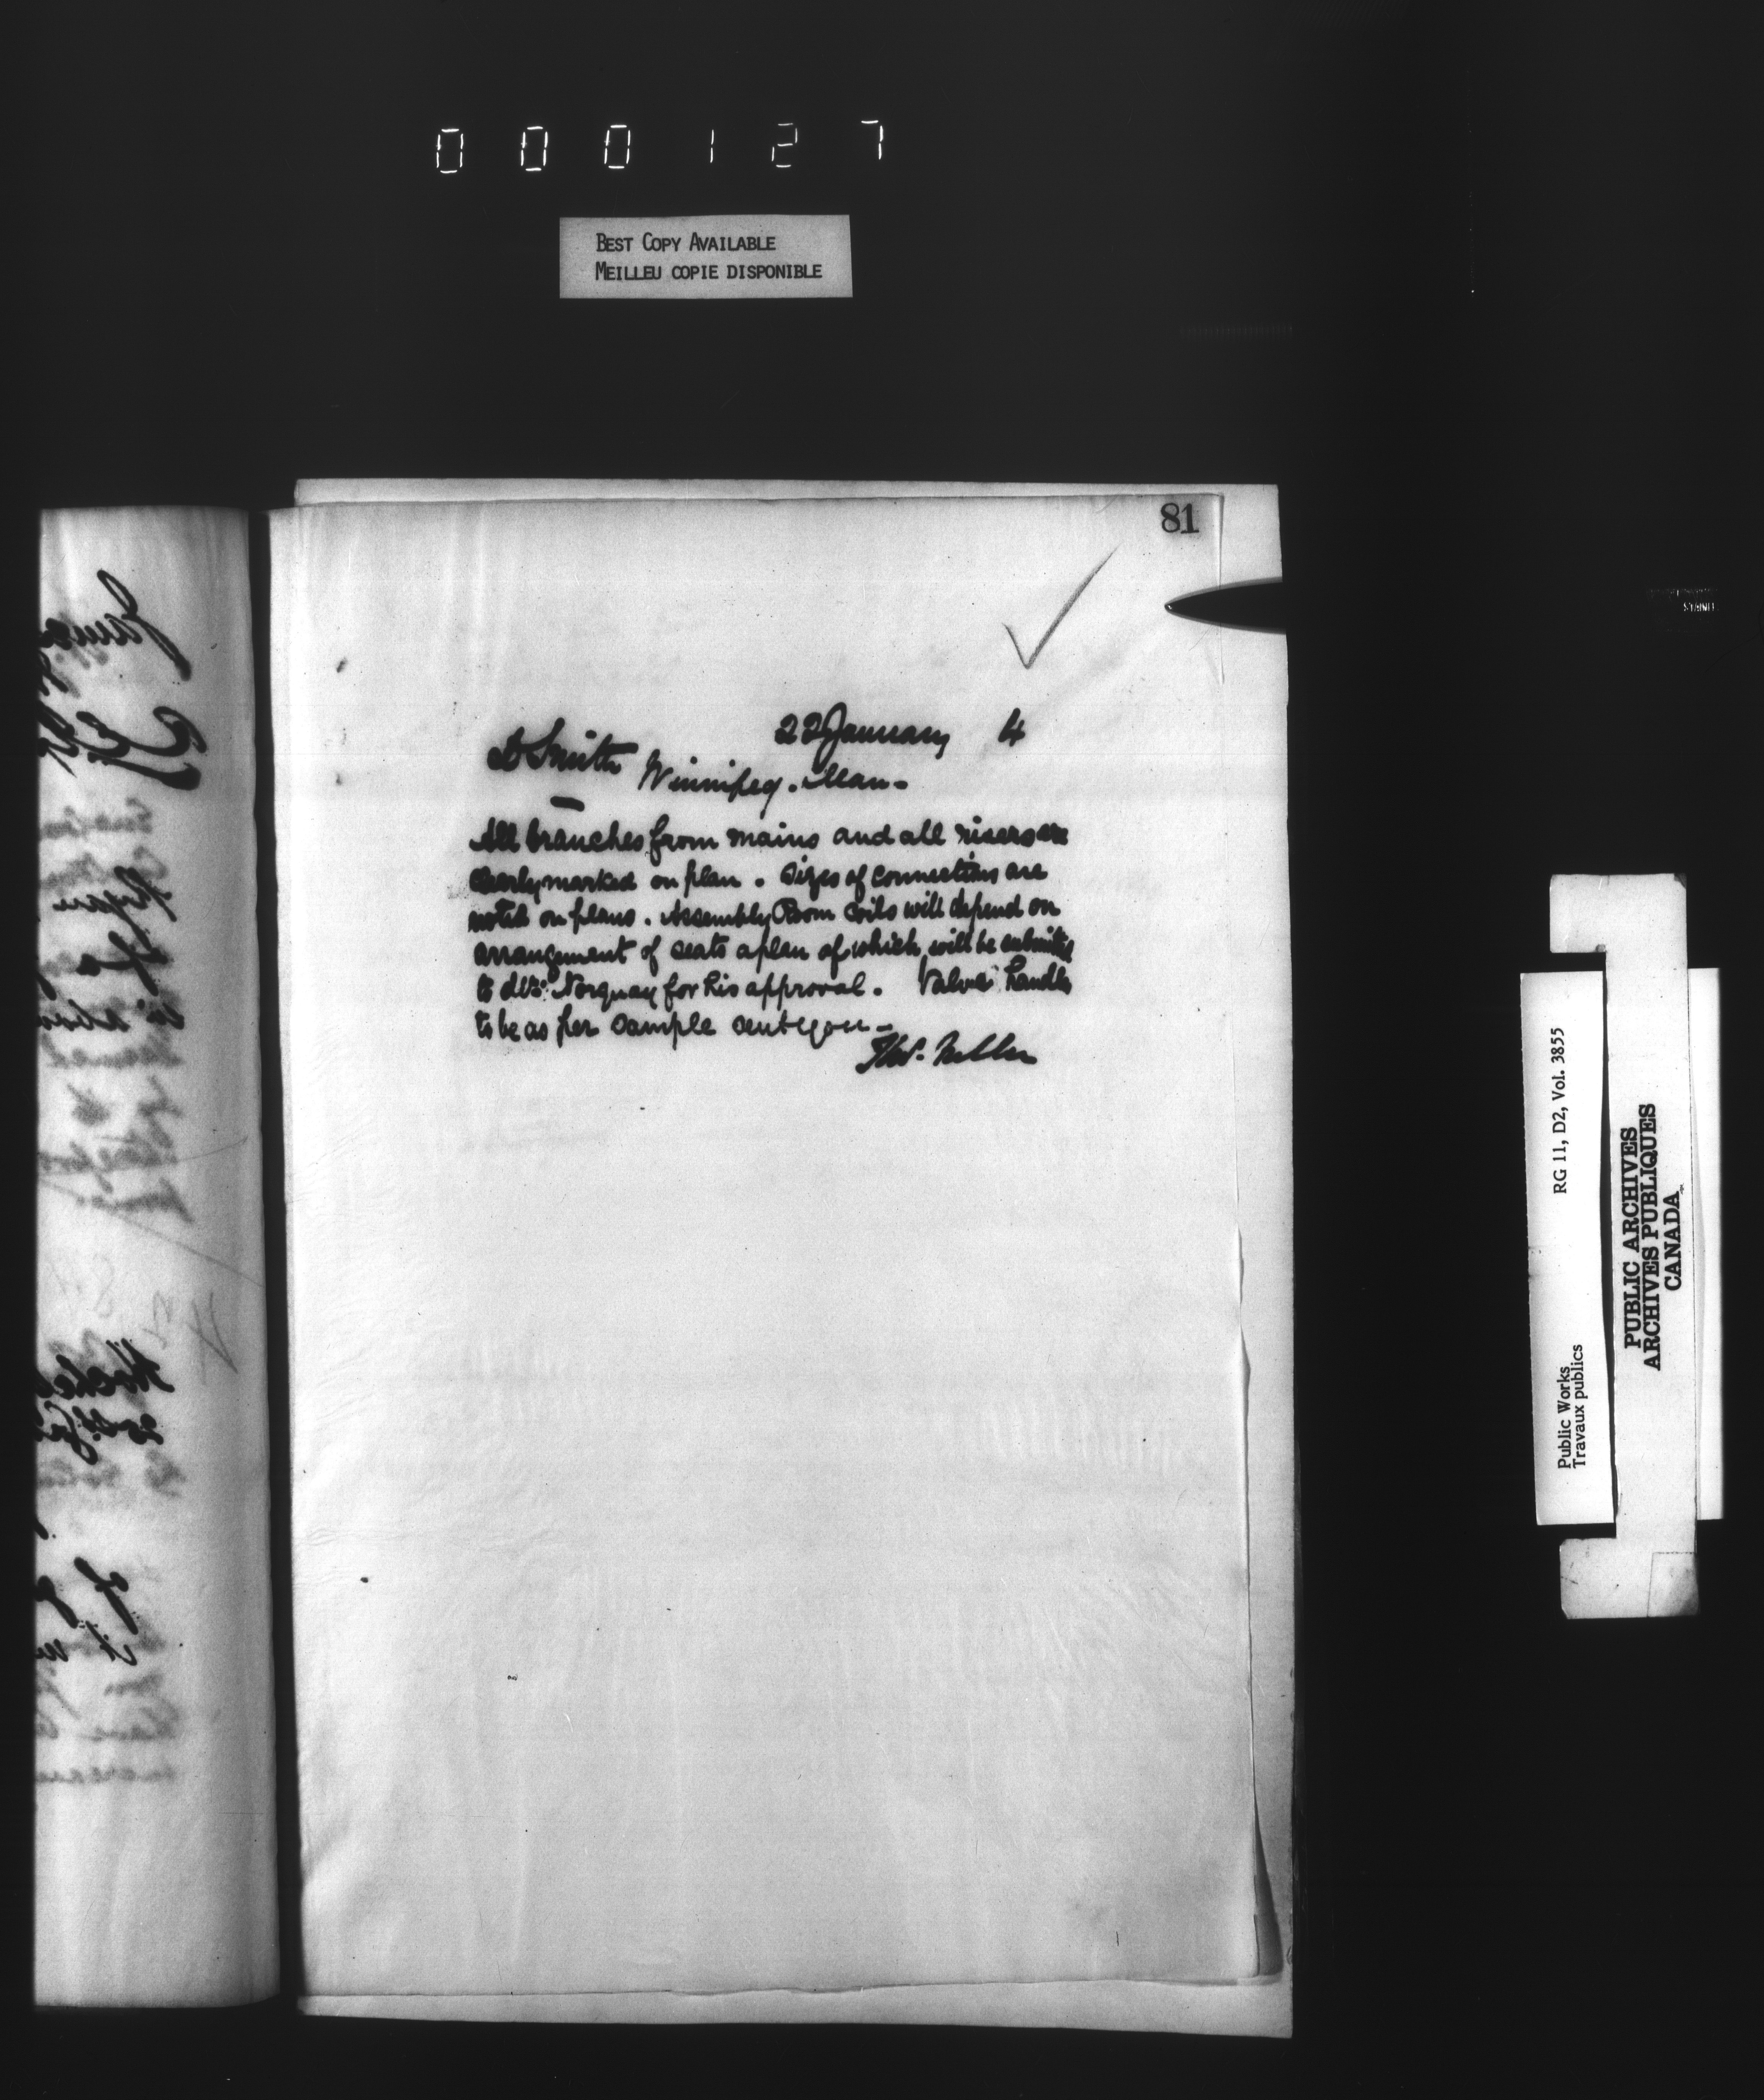 000127
BEST COPY AVAILABLE
MEILLEU COPIE DISPONIBLE
81
22 January 4
D Smith
Winnipeg. Man-
All branches from mains and all risers are
clearly marked on plan. Sizes of connections are
noted on plans. Assembly Room coils will depend on
arrangement of seats a plan of which will be submitted
to Mr. Norquay for his approval. Valve handles
to be as per sample sent you-
RG 11, D2, Vol. 3855
Public Works
Travaux publics
PUBLIC ARCHIVES
ARCHIVES PUBLIQUES
CANADA